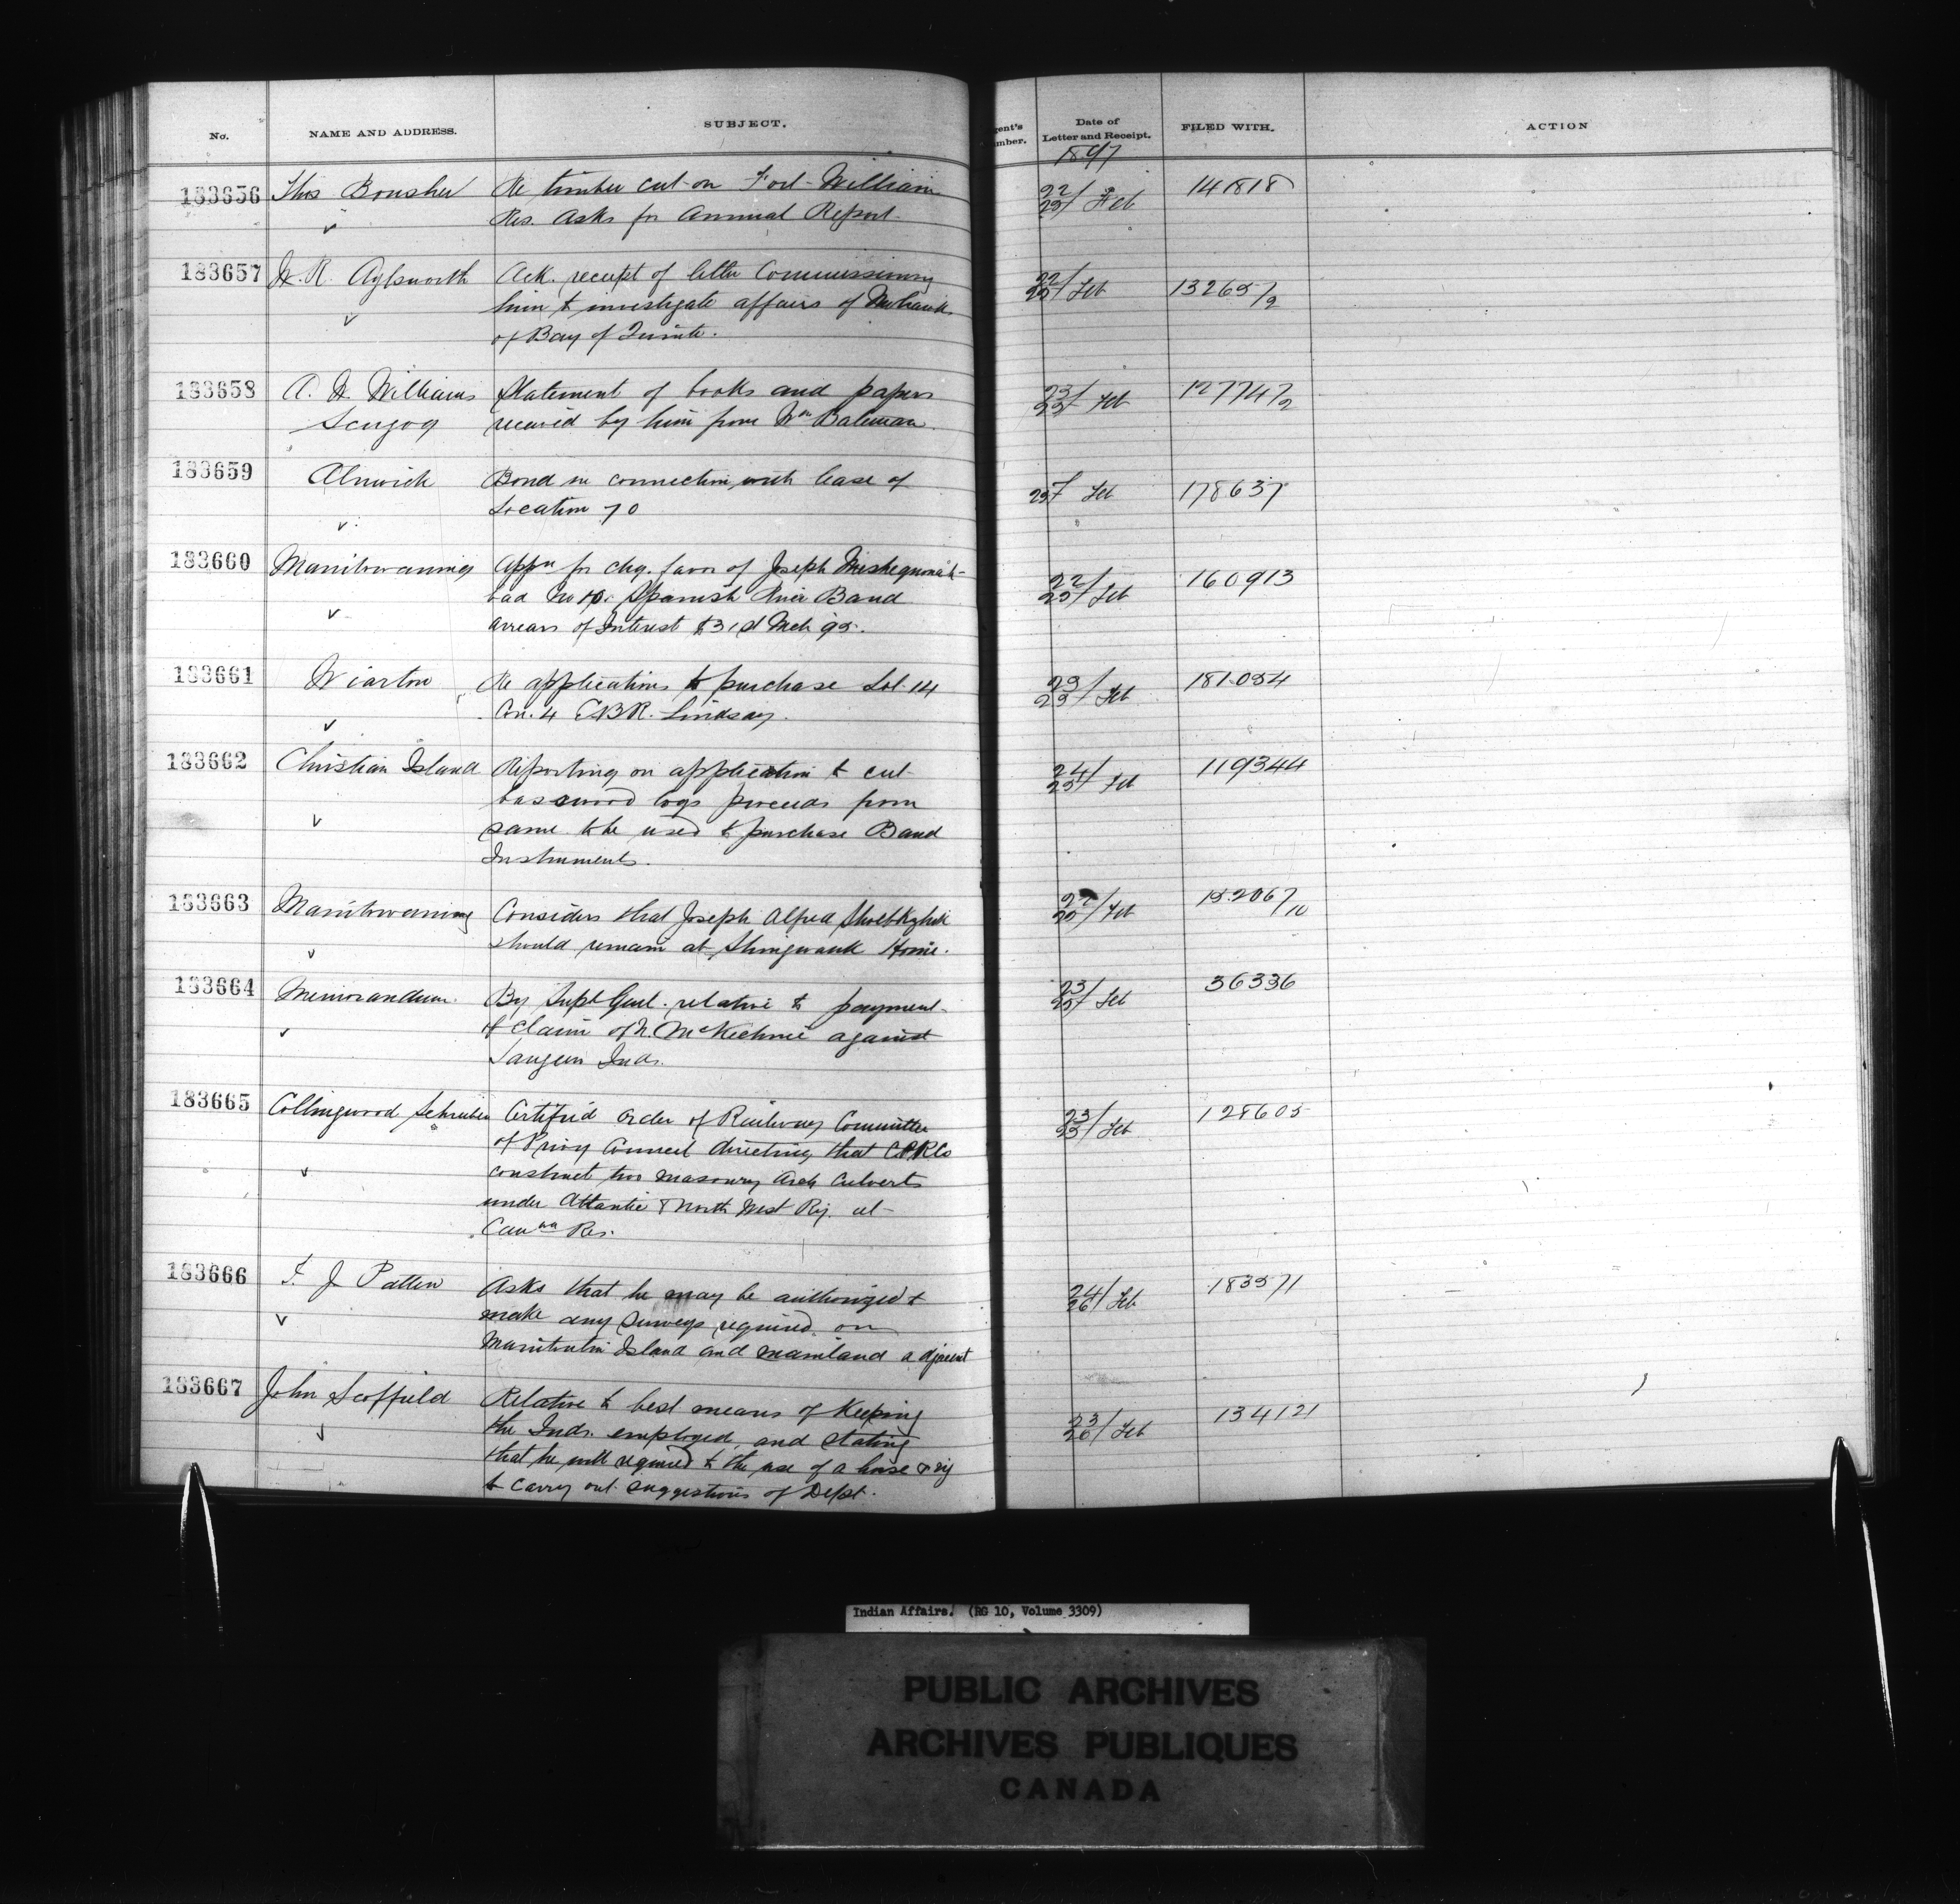 No. NAME AND ADDRESS. SUBJECT. gent's mber. Date of Letter and Receipt. FILED WITH. ACTION
1897
183656 Thos Bonsher Re timber cut on Fort William 22/25 Feb 141818
Res. Asks for Annual Report.
183657 W. R. Aylsworth Ack. receipt of letter Commissioning 22/25 Feb 13265/2
him to investigate affairs of Mohawks
of Bay of Quinte.
183658 A. W. Williams Statement of books and papers 23/25 Feb 12774/2
Scugog received by him from Wm Bateman
183659 Alnwick Bond in connection with lease of 25 Feb 178637
Location 70
183660 Manitowaning Appn for chq. favor of Joseph 22/25 Feb 160913
bad No 10. Spanish River Band
arrears of Interest to 31st Mch 95.
183661 Wiarton Re application to purchase Lot 14 23/25 Feb 181054
Con. 4 EBR. Lindsay.
183662 Christian Island Reporting on application to cut 24/25 Feb 119344
basswood logs proceeds from
same to be used to purchase Band
Instruments.
183663 Manitowaning Considers that Joseph Alfred 22/25 Feb 152067/10
should remain at Shingwauk Home.
183664 Memorandum. By Supt Genl. relative to payment 23/25 Feb 36336
of claim of N. McKechnie against
Saugeen Inds.
183665 Collingwood Schreiber Certified Order of Railway Committee 23/25 Feb 128605
of Privy Council directing that C.P.R Co
construct two masonry Arch Culverts
under Atlantic & North West Ry. at
Cauwa Res.
183666 T. J Patten Asks that he may be authorized to 24/26 Feb 183571
make any surveys required on
Manitoulin Island and mainland adjacent
183667 John Scoffield Relative to best means of Keeping 23/26 Feb 134121
the Inds. employed and stating
that he will required to the use of a horse & rig
to carry out suggestions of Dept.
Indian Affairs. (RG 10, Volume 3309)
PUBLIC ARCHIVES
ARCHIVES PUBLIQUES
CANADA